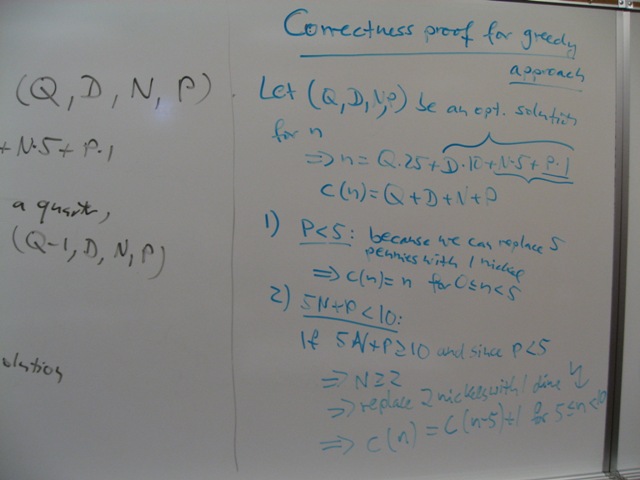 (Q, D, N, P)
+ N·5 + P·1
a quarter,
(Q-1, D, N, P)
solution
Correctness proof for greedy
approach
Let (Q, D, N, P) be an opt. solution
for n
⇒ n = Q·25 + D·10 + N·5 + P·1
C(n) = Q + D + N + P
1) P<5: because we can replace 5
pennies with 1 nickel
⇒ C(n) = n for 0≤n<5
2) 5N+P<10:
If 5N+P≥10 and since P<5
⇒ N≥2
⇒ replace 2 nickels with 1 dime ↯
⇒ C(n) = C(n-5)+1 for 5≤n<10